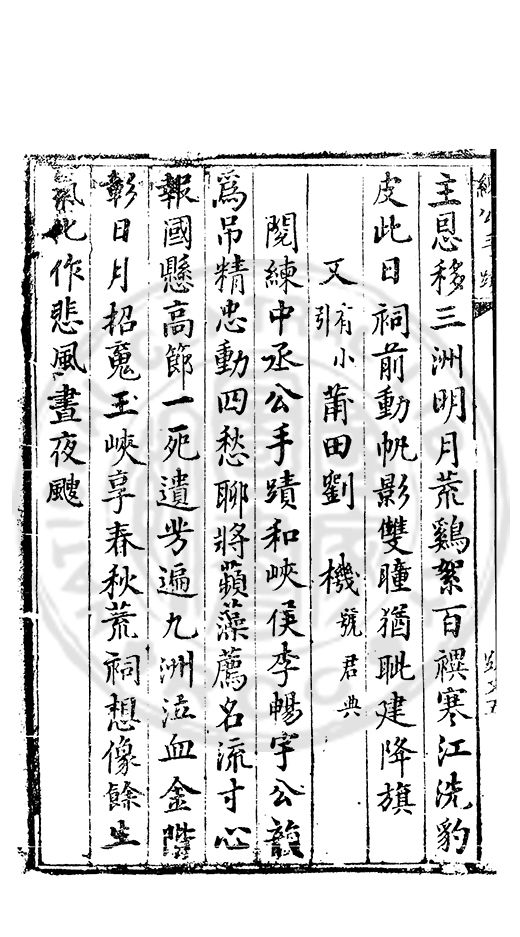 主恩移三洲明月荒鷄絮百禩寒江洗豹
皮此日祠前動帆影雙瞳猶眦建降旗
又有小引莆田劉機號君典
閱練中丞公手蹟和峽侯李暢宇公韻
爲吊精忠動四愁聊將蘋藻薦名流寸心
報國懸高節一死遺芳遍九洲泣血金堦
彰日月招䰟玉峽享春秋荒祠想像餘生
氣化作悲風晝夜颼